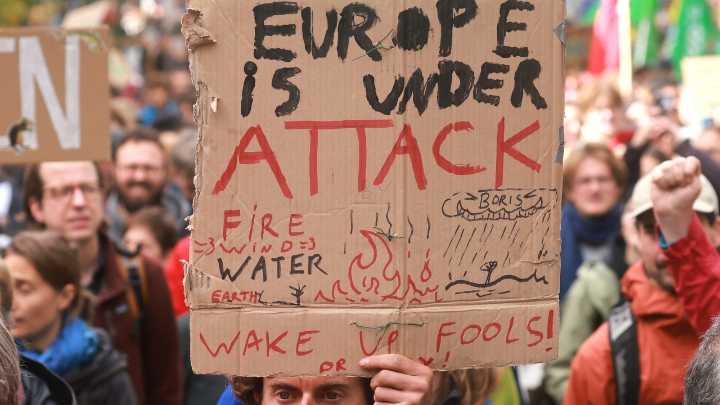 EN
EUROPE
iS UNDER
ATTACK
FiRE
WIND
WATER
EARTH
BORIS
WAKE UP FOOLS!
OR